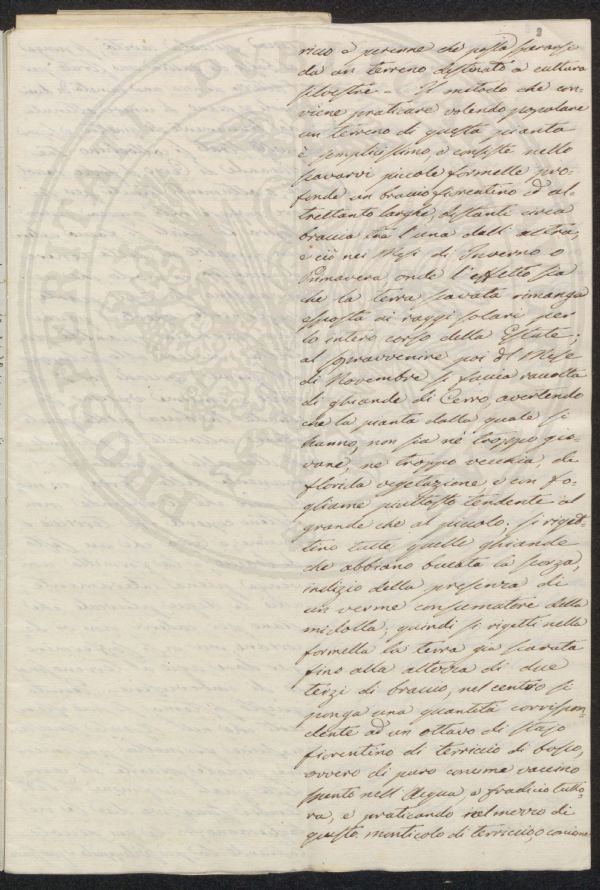 2
rico e perenne che possa sperarsi
da un terreno destinato a cultura
silvestre – Il metodo che con-
viene praticare volendo popolare
un terreno di questa pianta
è semplicissimo, e consiste nello
scavarvi piccole formelle pro-
fonde un braccio fiorentino ed al-
trettanto larghe, distanti circa
braccia tra l'una dall'altra,
e ciò nei Mesi di Inverno o
Primavera onde l'effetto sia
che la terra scavata rimanga
esposta ai raggi solari per
lo intero corso della Estate;
al sopravvenire poi del Mese
di Novembre si faccia raccolta
di ghiande di Cerro, avertendo
che la pianta dalla quale si
hanno, non sia nè troppo gio-
vane, ne troppo vecchia, di
florida vegetazione, e con fo-
gliame piuttosto tendente al
grande che al piccolo; si riget-
tino tutte quelle ghiande
che abbiano bucata la scorza,
indizio della presenza di
un verme consumatore della
midolla; quindi si rigetti nella
formella la terra già scavata
fino alla altezza di due
terzi di braccio, nel centro si
ponga una quantità corrispon-
dente ad un ottavo di staio
fiorentino di terriccio di bosco,
ovvero di puro concime vaccino
spento nell'Acqua, e fradicio tutto-
ra, e praticando nel mezzo di
questo monticolo di terriccio, o concime
PROSPERITATI PUBLICAE